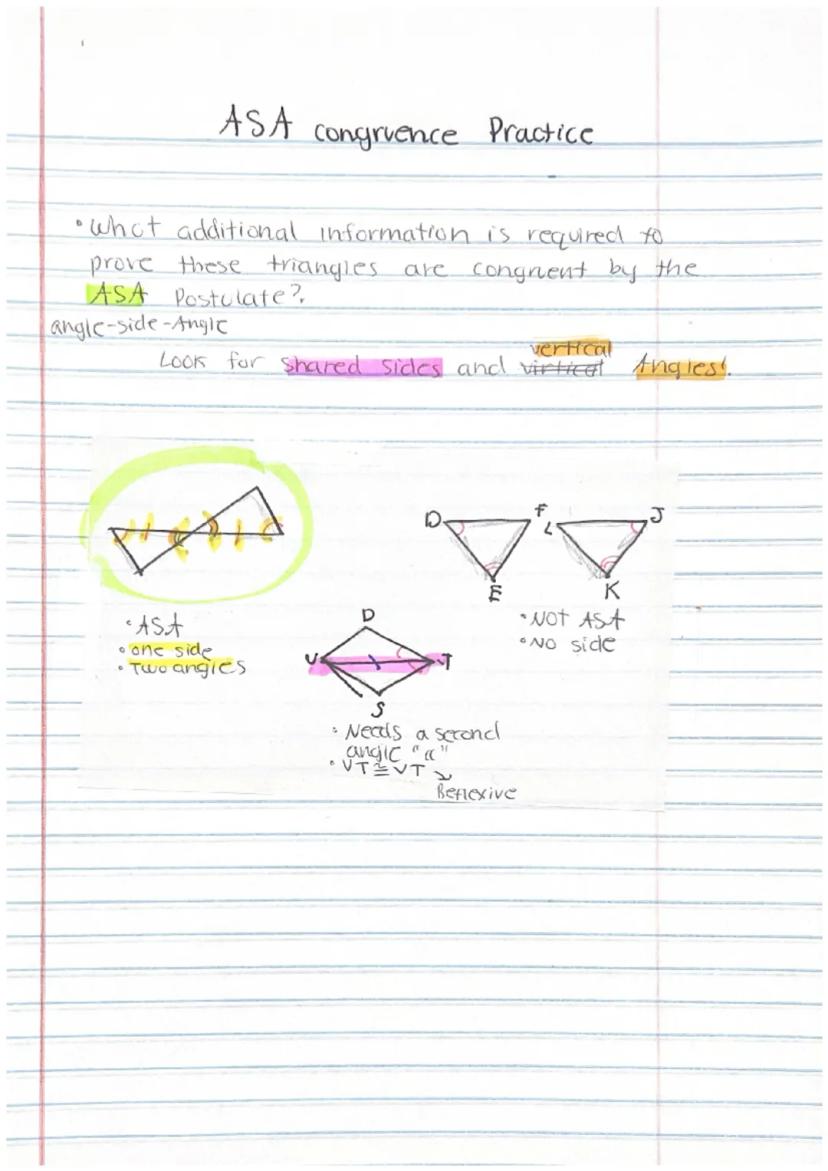 ASA congruence Practice
• What additional information is required to
prove these triangles are congruent by the
ASA Postulate?.
angle-side-Angle
vertical
Look for shared sides and virtical Angles!.
D F L J
E K
• ASA
• one side
• Two angles
• NOT ASA
• NO side
D
V T
S
• Needs a second
angle "a"
• VT ≅ VT ↘
Reflexive